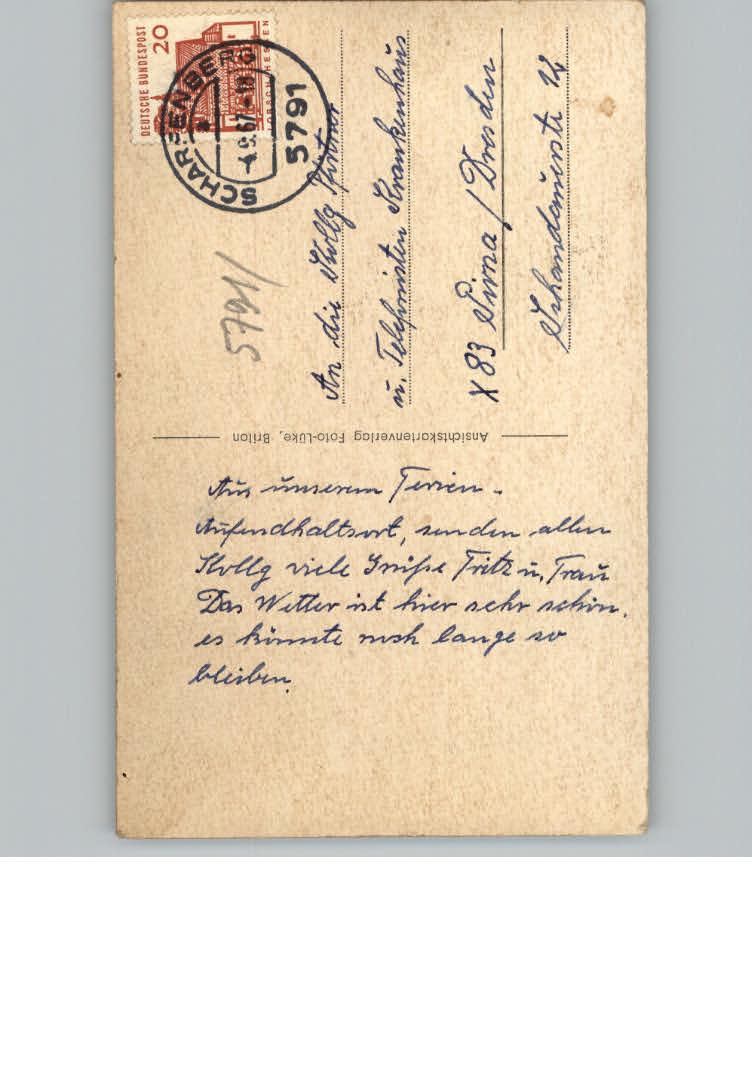 DEUTSCHE BUNDESPOST
20
LORSCH/HESSEN
SCHARFENBERG
-4.9.67-18
5791
5791/
An die Kollg Pförtner
u. Telefonisten Krankenhaus
X 83 Pirna / Dresden
Schandauerstr 12
Ansichtskartenverlag Foto-Lüke, Brilon
Aus unserem Ferien-
Aufendhaltsort, senden allen
Kollg viele Grüße Fritz u. Frau
Das Wetter ist hier sehr schön.
es könnte noch lange so
bleiben.